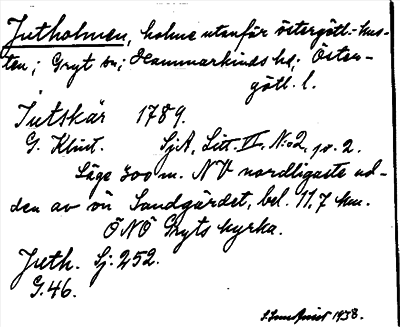 Jutholmen, holme utanför östergötl.-kus-
ten; Gryt sn; Hammarkinds hd; Öster-
götl. l.
Jutskär 1789.
G. Klint. SjA, Litt. II. No 2, p. 2.
Läge 300 m. NV nordligaste ud-
den av ön Sandgärdet, bel. 11,7 km.
ÖNÖ Gryts kyrka.
Juth. Sj: 252.
G. 46.
1938.